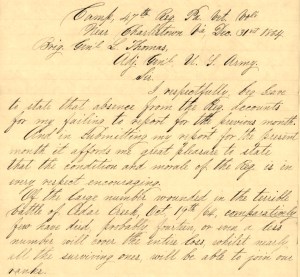 Camp, 47th Reg. Pa. Vet. Vols
Near Charlestown Va, Dec. 31st 1864.
Brig. Genl L. Thomas,
Adj. Genl. U. S. Army.
Sir.
I respectfully, beg leave
to state that absence from the Reg. accounts
for my failing to report for the previous month.
And in submitting my report for the present
month it affords me great pleasure to state
that the condition and morale of the Reg. is
in every respect encouraging.
Of the large number wounded in the terrible
battle of Cedar Creek, Oct 19th /64, comparatively
few have died, probably fourteen, or even a less
number will cover the entire loss, whilst nearly
all the surviving ones, will be able to join our
ranks.